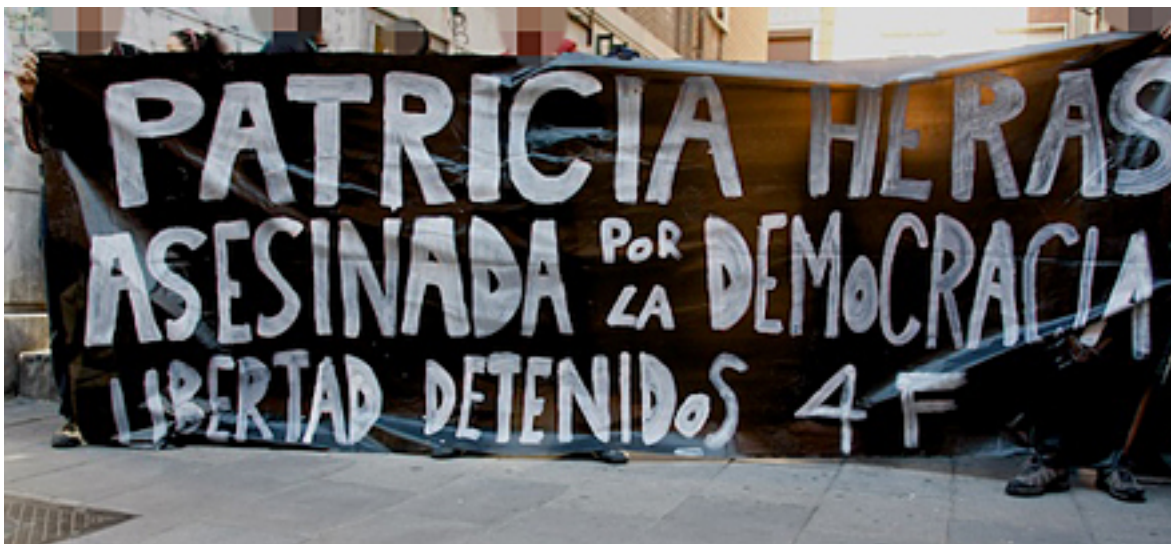 PATRICIA HERAS
ASESINADA POR LA DEMOCRACIA
LIBERTAD DETENIDOS 4F